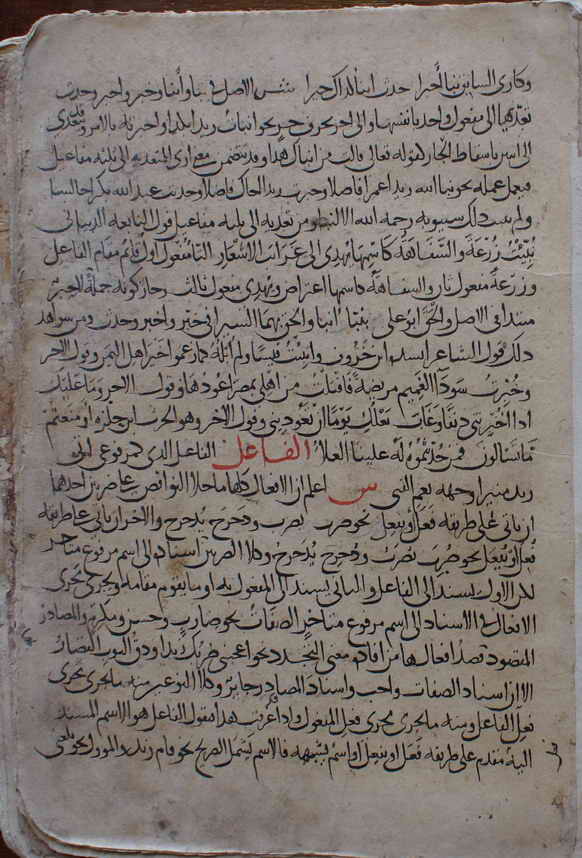 وكأرى السابق نبا أخبرا حدث انبا كذاك خبرا الاصل في نبا وأنبا وخبر واخبر وحدث
تعديها الى مفعول واحد بانفسها والى اخر بحرف جر نحو انبات زيدا بكذا واخبرته بالامر وقد يتعدى
الى اثنين باسقاط الجار كقوله تعالى قالت من انباك هذا وقد يتضمن معنى ارى المتعديه الى ثلثه مفاعيل
فيعمل عمله نحو نبا الله زيدا عمرا فاضلا وخبرت زيدا اخاك فاضلا وحدثت عبد الله بكرا جالسا
ولم يثبت ذلك سيبويه رحمه الله الا من تعديه الى ثلثه مفاعيل قول النابغه الذبياني
نُبِّئْتُ زُرْعَةَ والسَّفَاهَةُ كاسمها يهدي الى غرائب الاشعار التا مفعول اول قائم مقام الفاعل
وزرعة مفعول ثان والسفاهة كاسمها اعتراض ويهدي مفعول ثالث وجاز كونه جملة لانه خبر
مبتدا في الاصل والحق ابو علي بنبّا انبا والحق بهما السيرافي خبّر واخبر وحدث ومن شواهد
ذلك قول الشاعر انشده ابن خروف وانبئت قيسا ولم ابله كما زعموا خير اهل اليمن وقول الاخر
وخبرت سوداء الغميم مريضة فاقبلت من اهلي بمصر اعودها وقول الاخر وما عليك
اذا اخبرتني دنفا وغاب بعلك يوما ان تعوديني وقول الاخر وهو الحرث ابن حلزه او منعتم
ما تسالون فمن حُدّثتموه له علينا العلاء الفاعل الفاعل الذي كمرفوعي اتى
زيد منيرا وجهه نعم الفتى س اعلم ان الافعال كلها ما خلا النواقص على ضربين احدهما
ان ياتي على طريقه فعل او يفعل نحو ضرب يضرب ودحرج يدحرج والاخر ان ياتي على طريقه
فُعِل او يُفعَل نحو ضُرِبَ يُضرَبُ ودُحرج يُدحرج وكلا الضربين اسناده الى اسم مرفوع متاخر
لكن الاول يسند الى الفاعل والثاني يسند الى المفعول به او ما يقوم مقامه ويجري مجرى
الافعال في الاسناد الى اسم مرفوع متاخر الصفات نحو ضارب وحسن ومكرم والمصادر
المقصود قصد افعالها من افاده معنى التجدد نحو اعجبني ضربك زيدا ودق الثوب القصار
الا ان اسناد الصفات واجب واسناد المصادر جايز وكلا النوعين منه ما يجري مجرى
فعل الفاعل ومنه ما يجري مجرى فعل المفعول واذا عرفت هذا فنقول الفاعل هو الاسم المسند
اليه مقدم على طريقه فعل او يفعل او اسم يشبهه فالاسم يشمل الصريح نحو قام زيد والمؤول نحو بلغني